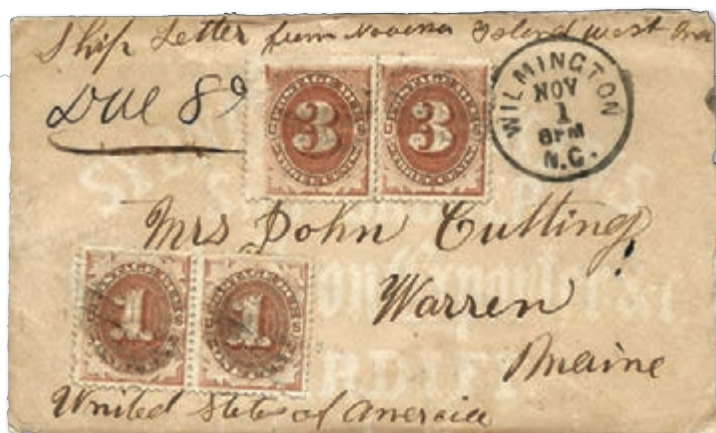 Ship Letter from Navassa Island West Ind
Due 8¢
3 3
WILMINGTON
NOV
1
6PM
N.C.
Mrs John Cutting
Warren
Maine
1 1
United States of America